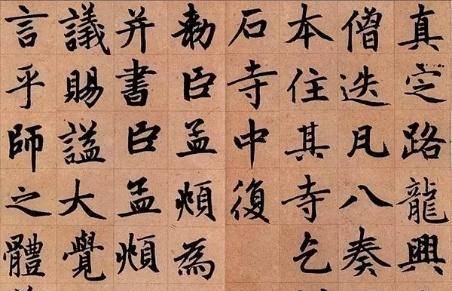 真定路龍興
僧迭凡八奏
本住其寺乞
石寺中復
勅臣孟頫為
并書臣孟頫
議賜謚大覺
言乎師之體